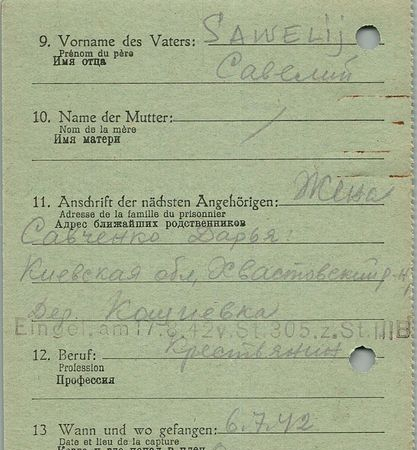 9. Vorname des Vaters: SAWELIJ
Prénom du père
Имя отца
Савелий
10. Name der Mutter: /
Nom de la mère
Имя матери
11. Anschrift der nächsten Angehörigen: Жена
Adresse de la famille du prisonnier
Адрес ближайших родственников
Савченко Дарья:
Киевская обл, Хвастовский р-н,
дер. Кощіевка
Eingel. am 17.8.42 v. St. 305. z. St. III B
12. Beruf: Крестьянин
Profession
Профессия
13 Wann und wo gefangen: 6.7.42
Date et lieu de la capture